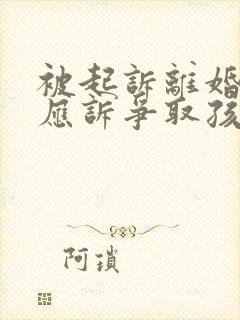 被起訴離婚
應訴爭取孩
阿瑣